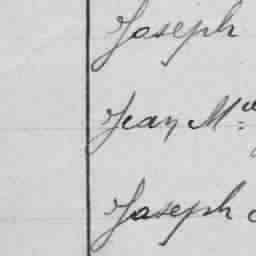 Joseph
Jean M
Joseph